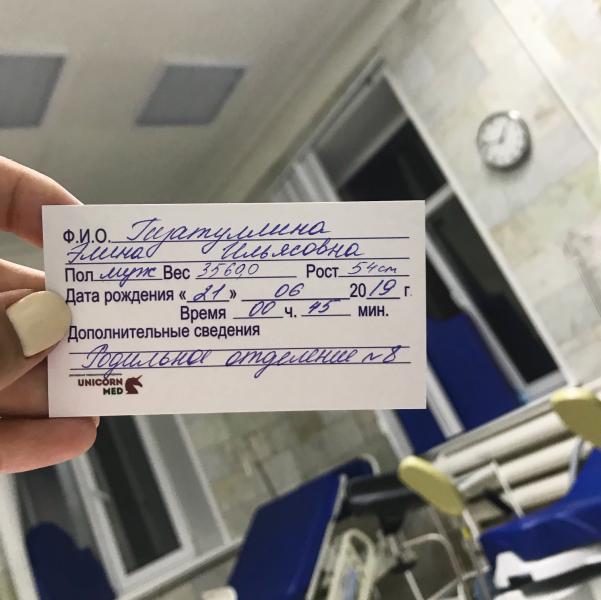 Ф.И.О. Гизатуллина
Элина Ильясовна
Пол муж Вес 3560,0 Рост 54см
Дата рождения « 21 » 06 2019 г.
Время 00 ч. 45 мин.
Дополнительные сведения
Родильное отделение №8
UNICORN
MED